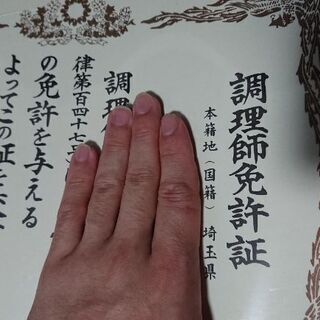 調理師免許証
本籍地(国籍) 埼玉県
調理
律第百四十七
の免許を与える
よってこの証を